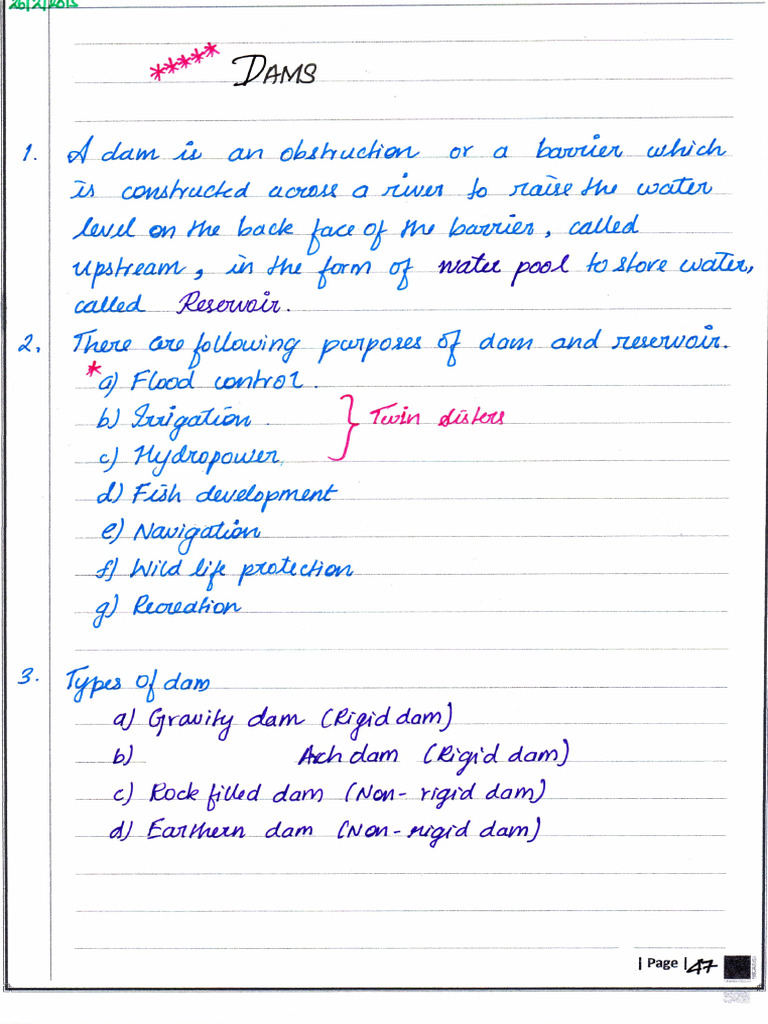 26/2/2015
***** DAMS
1. A dam is an obstruction or a barrier which
is constructed across a river to raise the water
level on the back face of the barrier, called
upstream, in the form of water pool to store water,
called Reservoir.
2. There are following purposes of dam and reservoir.
* a) Flood control.
b) Irrigation. } Twin sisters
c) Hydropower.
d) Fish development
e) Navigation
f) Wild life protection
g) Recreation
3. Types of dam
a) Gravity dam (Rigid dam)
b) Arch dam (Rigid dam)
c) Rock filled dam (Non-rigid dam)
d) Earthern dam (Non-rigid dam)
| Page | 47